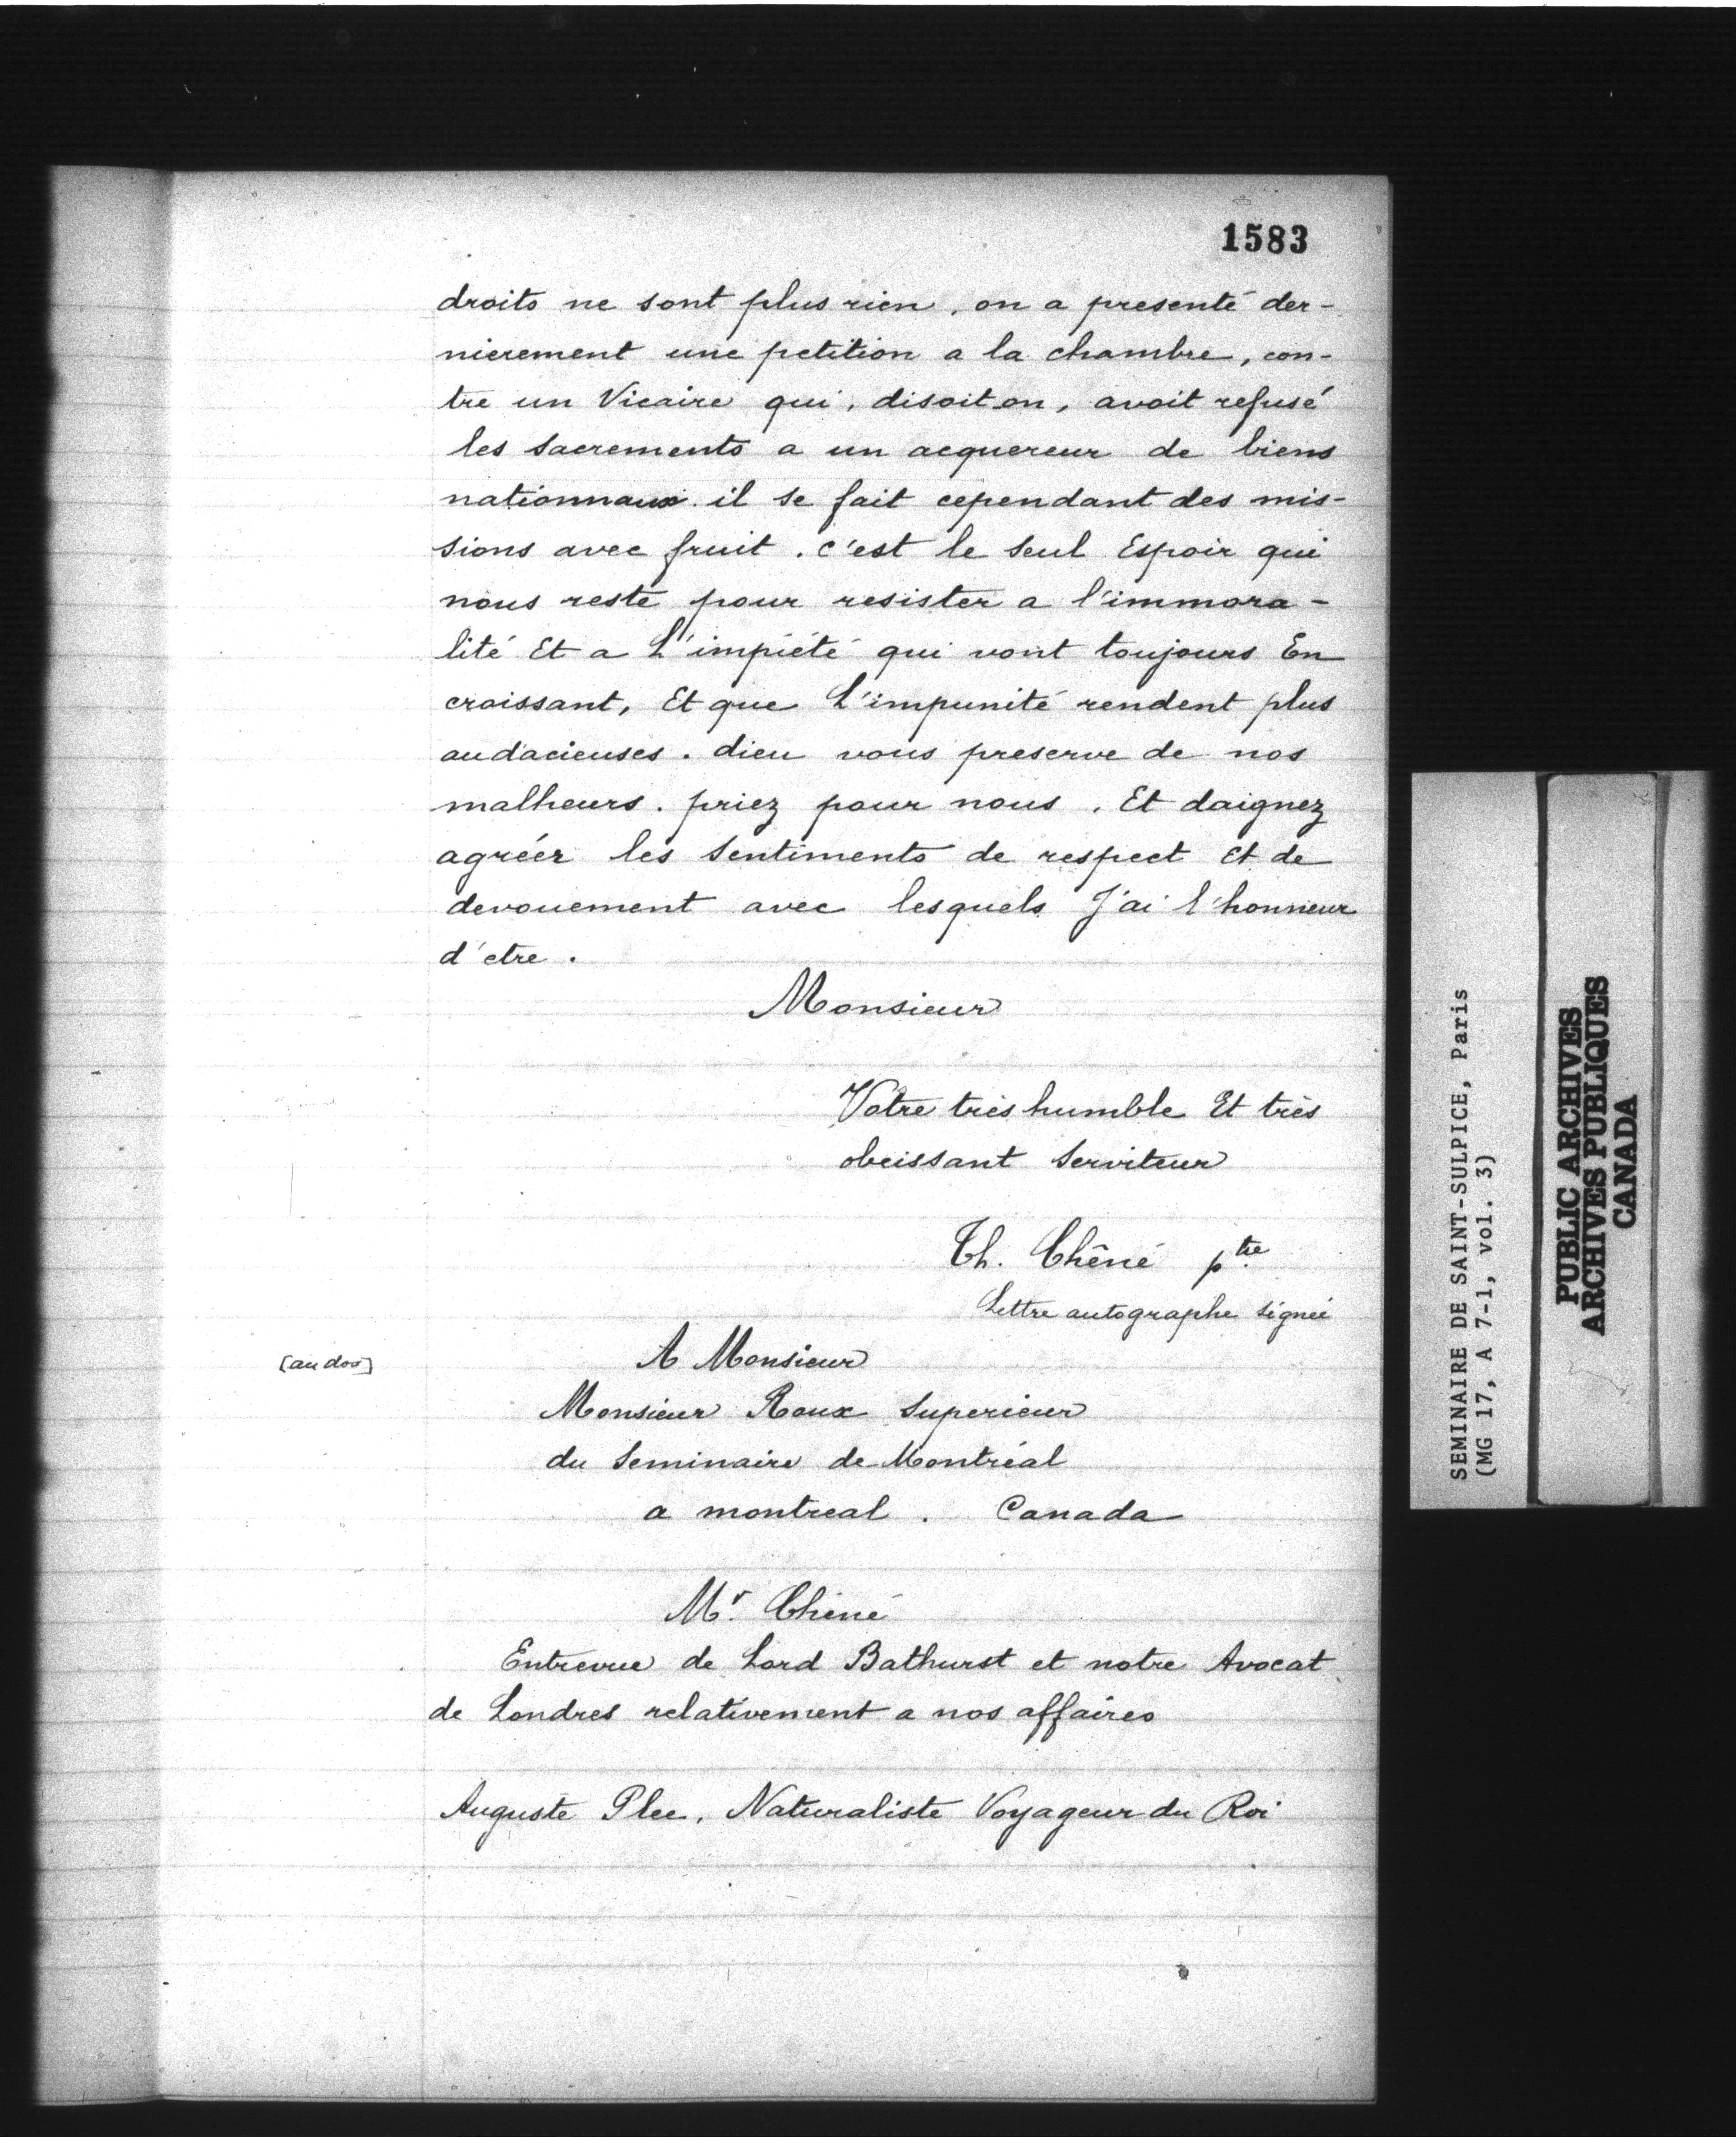 1583
droits ne sont plus rien. on a presenté der-
nierement une petition a la chambre, con-
tre un Vicaire qui, disoit-on, avoit refusé
les sacrements a un acquereur de biens
nationnaux. il se fait cependant des mis-
sions avec fruit. c'est le seul Espoir qui
nous reste pour resister a l'immora-
lité Et a L'impiété qui vont toujours En
croissant, Et que L'impunité rendent plus
audacieuses. dieu vous preserve de nos
malheurs. priez pour nous. Et daignez
agréer les sentiments de respect Et de
devouement avec lesquels J'ai l'honneur
d'etre.
Monsieur
Votre très humble Et très
obeissant serviteur
Th. Chêné ptre
Lettre autographe signée
[au dos]
A Monsieur
Monsieur Roux superieur
du seminaire de Montréal
a montreal. Canada
Mr. Chêné
Entrevue de Lord Bathurst et notre Avocat
de Londres relativement a nos affaires
Auguste Plee, Naturaliste Voyageur du Roi
SEMINAIRE DE SAINT-SULPICE, Paris
(MG 17, A 7-1, vol. 3)
PUBLIC ARCHIVES
ARCHIVES PUBLIQUES
CANADA